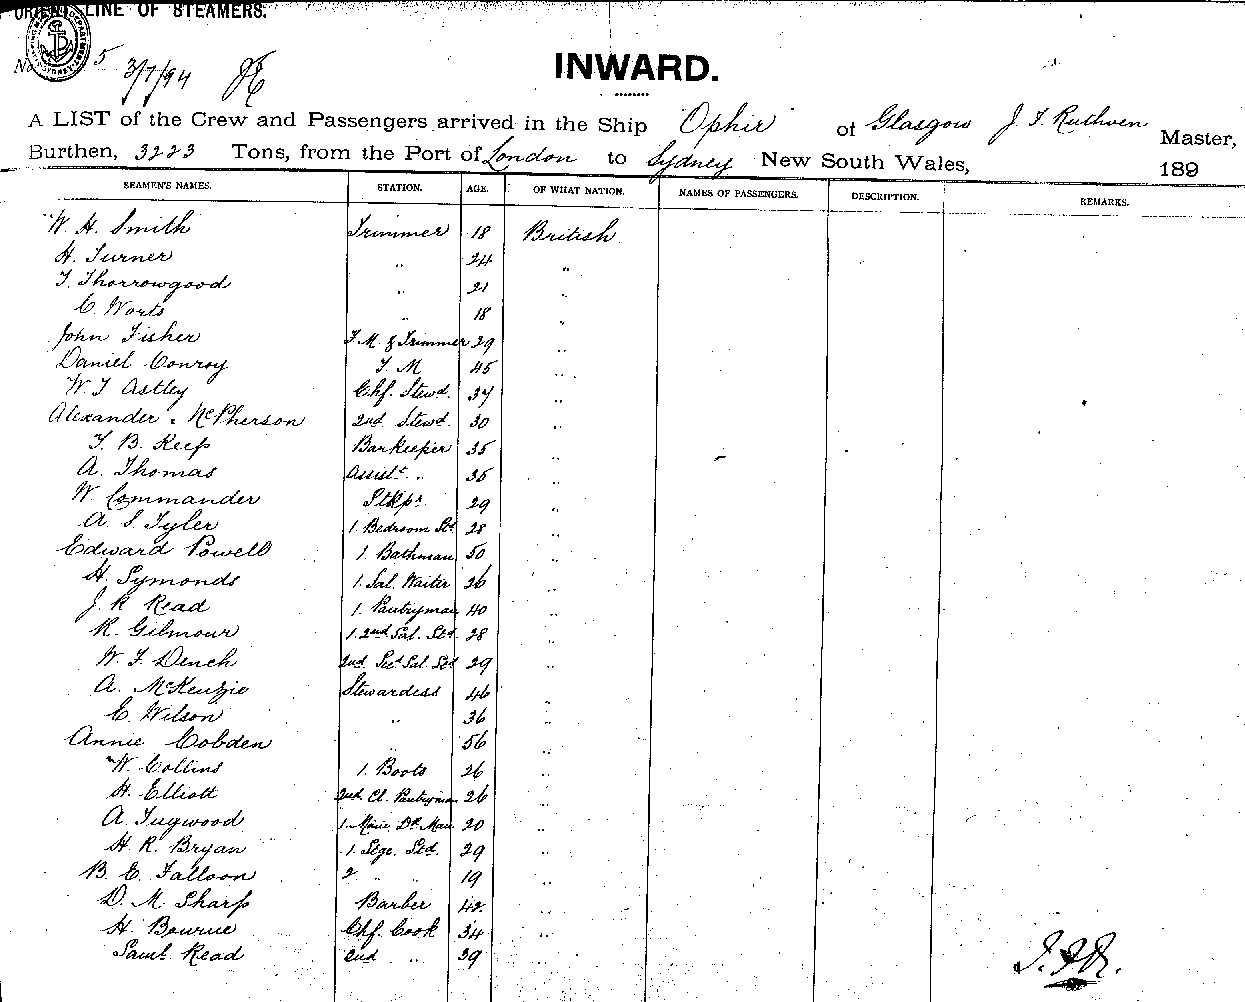 ORIENT LINE OF STEAMERS.
No 5 3/7/94
INWARD.
A LIST of the Crew and Passengers arrived in the Ship "Ophir" of Glasgow J. F. Ruthven Master,
Burthen, 3223 Tons, from the Port of London to Sydney New South Wales, 189
SEAMEN'S NAMES. STATION. AGE. OF WHAT NATION. NAMES OF PASSENGERS. DESCRIPTION. REMARKS.
W. H. Smith Trimmer 18 British
H. Turner " 24 "
T. Thorrowgood " 21 "
C. Worts " 18 "
John Fisher F. M. & Trimmer 29 "
Daniel Conroy F. M 45 "
W. T Astley Chf. Stewd. 37 "
Alexander McPherson 2nd Stewd. 30 "
F. B. Keep Barkeeper 35 "
A. Thomas Assist. " 35 "
W. Commander Stkpr 29 "
A. S. Tyler 1. Bedroom Std. 28 "
Edward Powell 1. Bathman 50 "
H. Symonds 1. Sal. Waiter 26 "
J. R Read 1. Pantryman 40 "
R. Gilmour 1. 2nd Sal. Std. 28 "
W. F. Dench 2nd Sal Std 29 "
A. McKenzie Stewardess 46 "
C. Wilson " 36 "
Annie Cobden " 56 "
W. Collins 1. Boots 26 "
H. Elliott 2nd Cl. Pantryman 26 "
A. Tugwood 1. 20 "
H. R. Bryan 1. Stge. Std. 29 "
B. E. Falloon 2 " " 19 "
D. M. Sharp Barber 42 "
H. Bourne Chf. Cook 34 "
Saml Read 2nd " 39